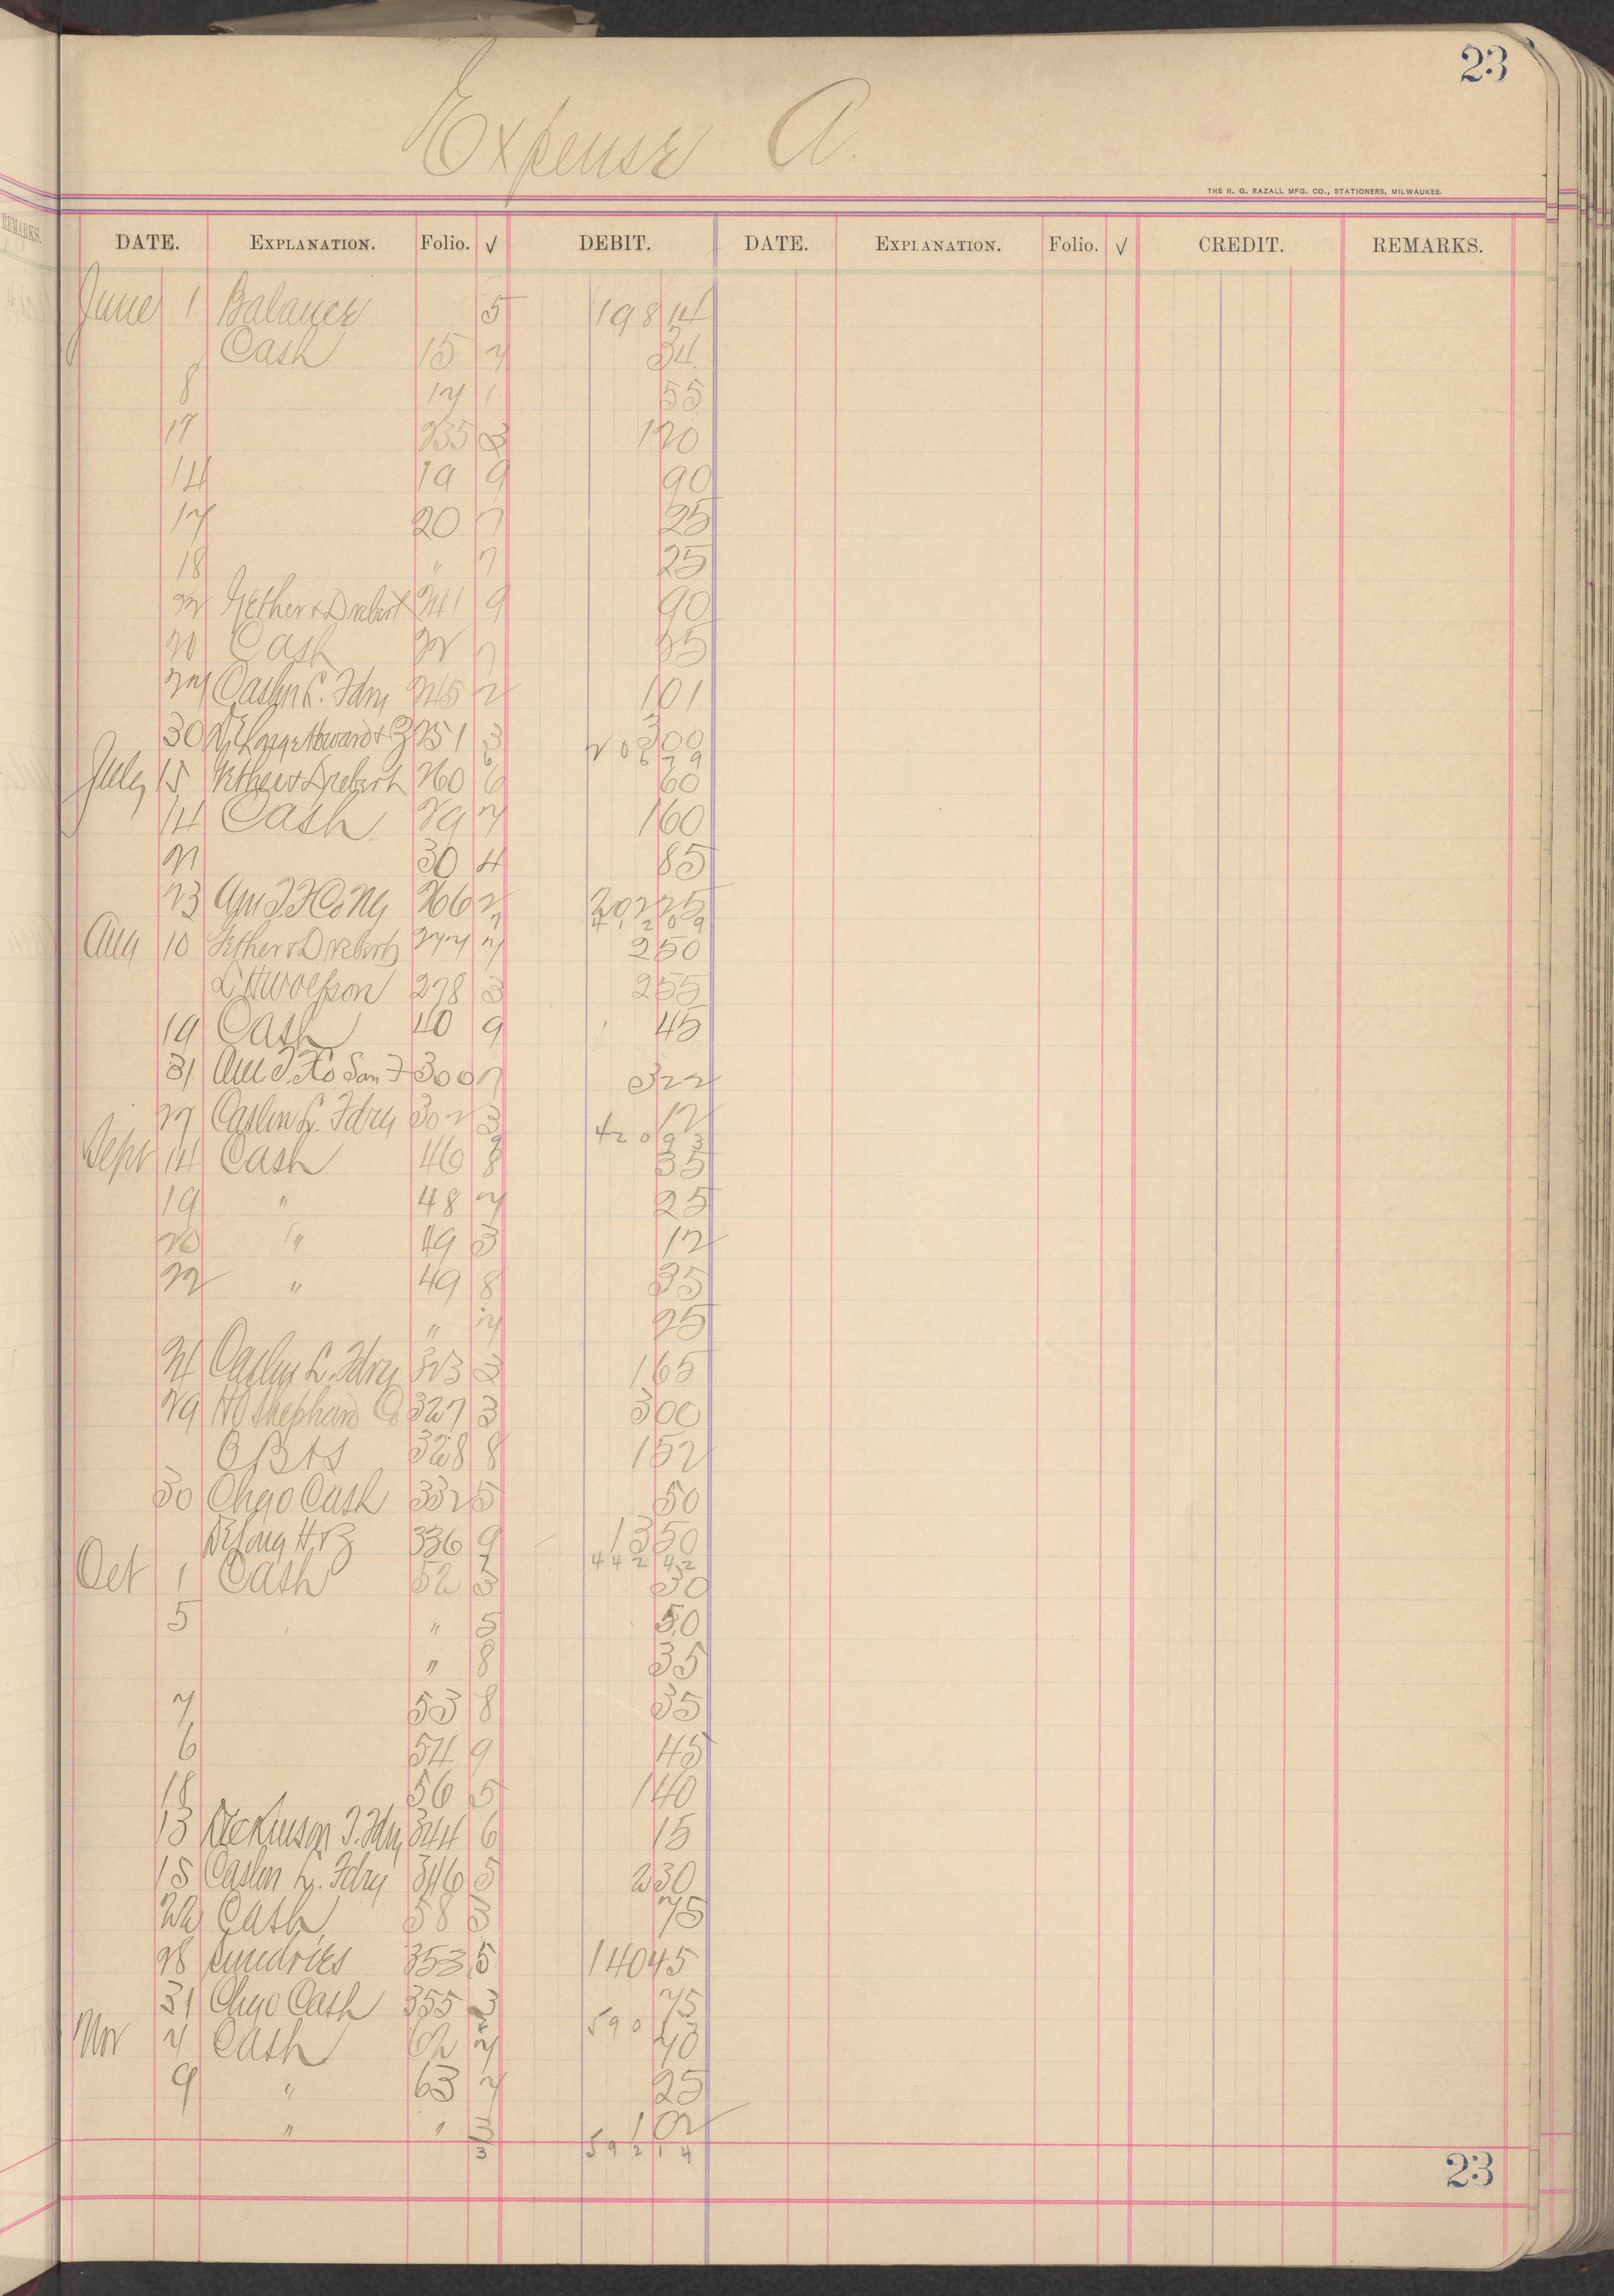 23
Expense A.
THE H. G. RAZALL MFG. CO., STATIONERS, MILWAUKEE.
REMARKS.
DATE. EXPLANATION. Folio. √ DEBIT. DATE. EXPLANATION. Folio. √ CREDIT. REMARKS.
June 1 Balance 5 198 14
Cash 15 7 34
8 17 1 55
12 235 3 1 20
14 19 9 90
17 20 7 25
18 " 7 25
22 & 241 9 90
20 Cash 22 7 35
27 Caslon L. Fdry 245 2 1 01
30 Howard & 251 3 3 00
206 79
July 15 & 260 6 60
14 Cash 29 7 1 60
21 30 4 85
23 Am T. F Co NY 266 2 202 25
412 09
Aug 10 & 277 7 2 50
L H Wolfson 278 3 2 55
19 Cash 40 9 45
31 Am T. F Co San F 300 7 3 22
27 Caslon L. Fdry 302 3 12
420 93
Sept 14 Cash 46 8 35
19 " 48 7 25
20 " 49 3 12
22 " 49 8 35
" 7 25
24 Caslon L. Fdry 323 3 1 65
29 H O Shephard Co 327 3 3 00
O B H S 328 8 1 52
30 Chgo Cash 332 5 50
336 9 13 50
442 42
Oct 1 Cash 52 3 30
5 " 5 50
" 8 35
7 53 8 35
6 54 9 45
18 56 5 1 40
13 Dickinson T. Fdy 344 6 15
15 Caslon L. Fdry 346 5 2 30
22 Cash 58 3 75
28 Sundries 353 5 140 45
31 Chgo Cash 355 3 75
590
Nov 7 Cash 62 7 40
9 " 63 7 25
" " 3 1 02
3 592 14
23